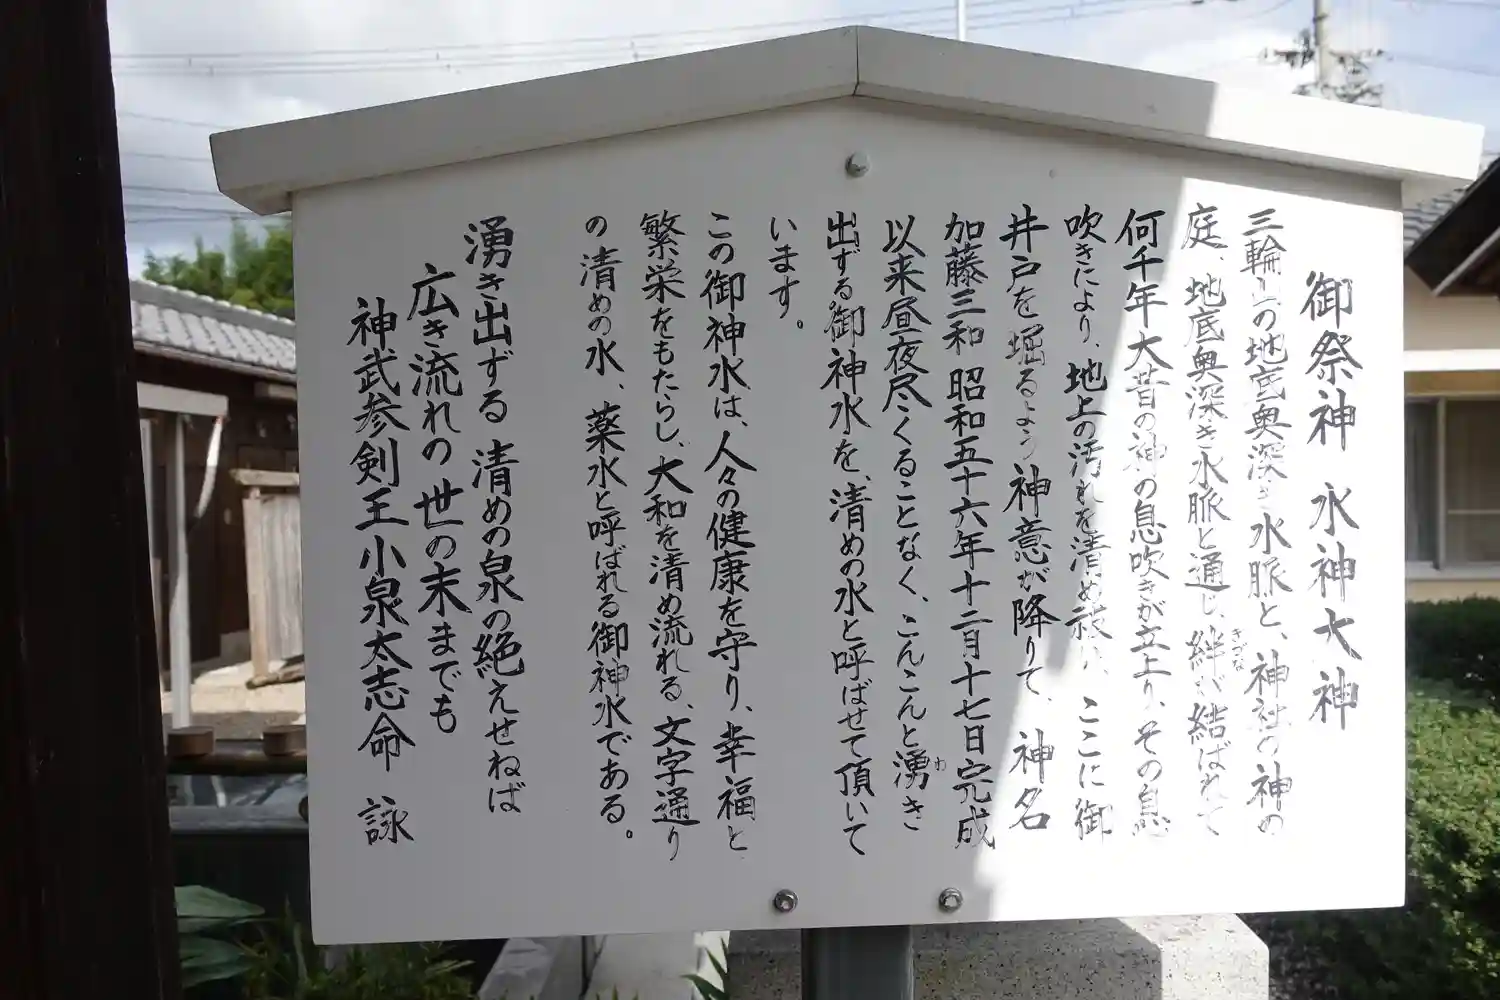 御祭神 水神大神
三輪山の地底奥深き水脈と、神社の神め
庭、地底奥深き水脈と通じ、絆が結ばれて
きづな
何千年大昔の神の息吹きが立上り、その息
吹きにより、地上の汚れを清め祓い、ここに御
井戸を堀るよう神意が降りて、神名
加藤三和 昭和五十六年十二月十七日完成
以来昼夜尽くることなく、こんこんと湧き
わ
出ずる御神水を、清めの水と呼ばせて頂いて
います。
この御神水は、人々の健康を守り、幸福と
繁栄をもたらし、大和を清め流れる、文字通り
の清めの水、薬水と呼ばれる御神水である。
湧き出ずる 清めの泉の絶えせねば
広き流れの 世の末までも
神武参剣王小泉太志命 詠